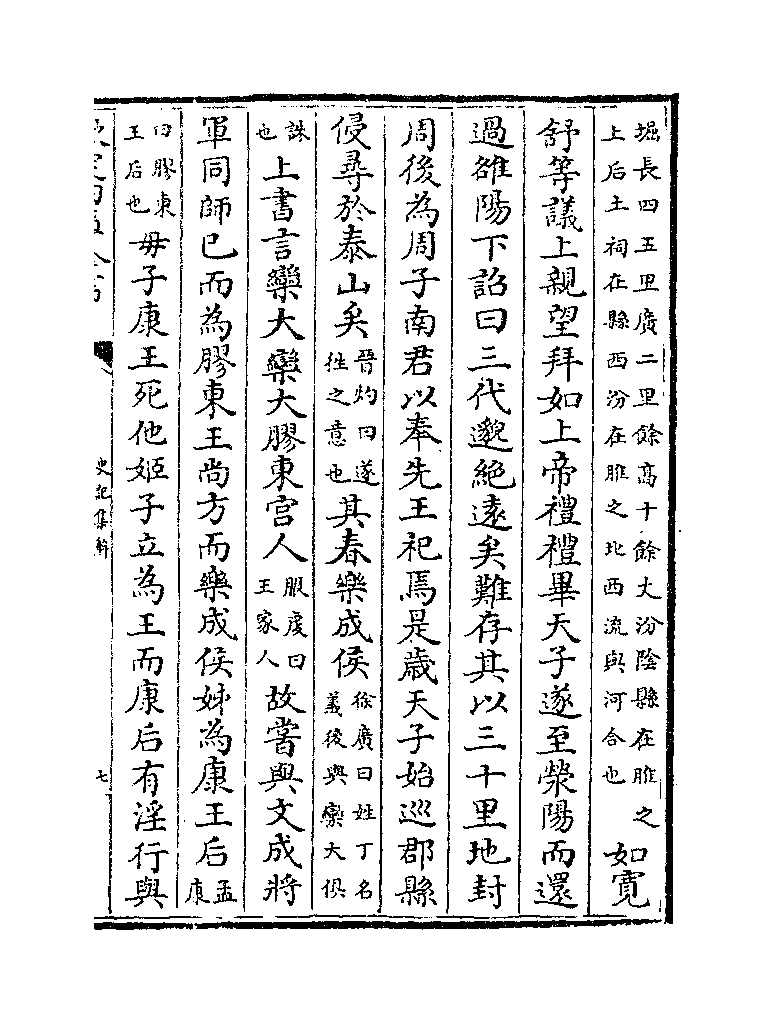 堀長四五里廣二里餘髙十餘丈汾陰縣在脽之上后土祠在縣西汾在脽之北西流與河合也如寛
舒等議上親望拜如上帝禮禮畢天子遂至滎陽而還
過雒陽下詔曰三代邈絶逺矣難存其以三十里地封
周後為周子南君以奉先王祀焉是歳天子始巡郡縣
侵尋於泰山矣晉灼曰遂徃之意也其春樂成侯徐廣曰姓丁名義後與欒大俱
誅也上書言欒大欒大膠東宫人服䖍曰王家人故嘗與文成將
軍同師已而為膠東王尚方而樂成侯姊為康王后孟康
曰膠東王后也毋子康王死他姬子立為王而康后有淫行與
史記集解
七